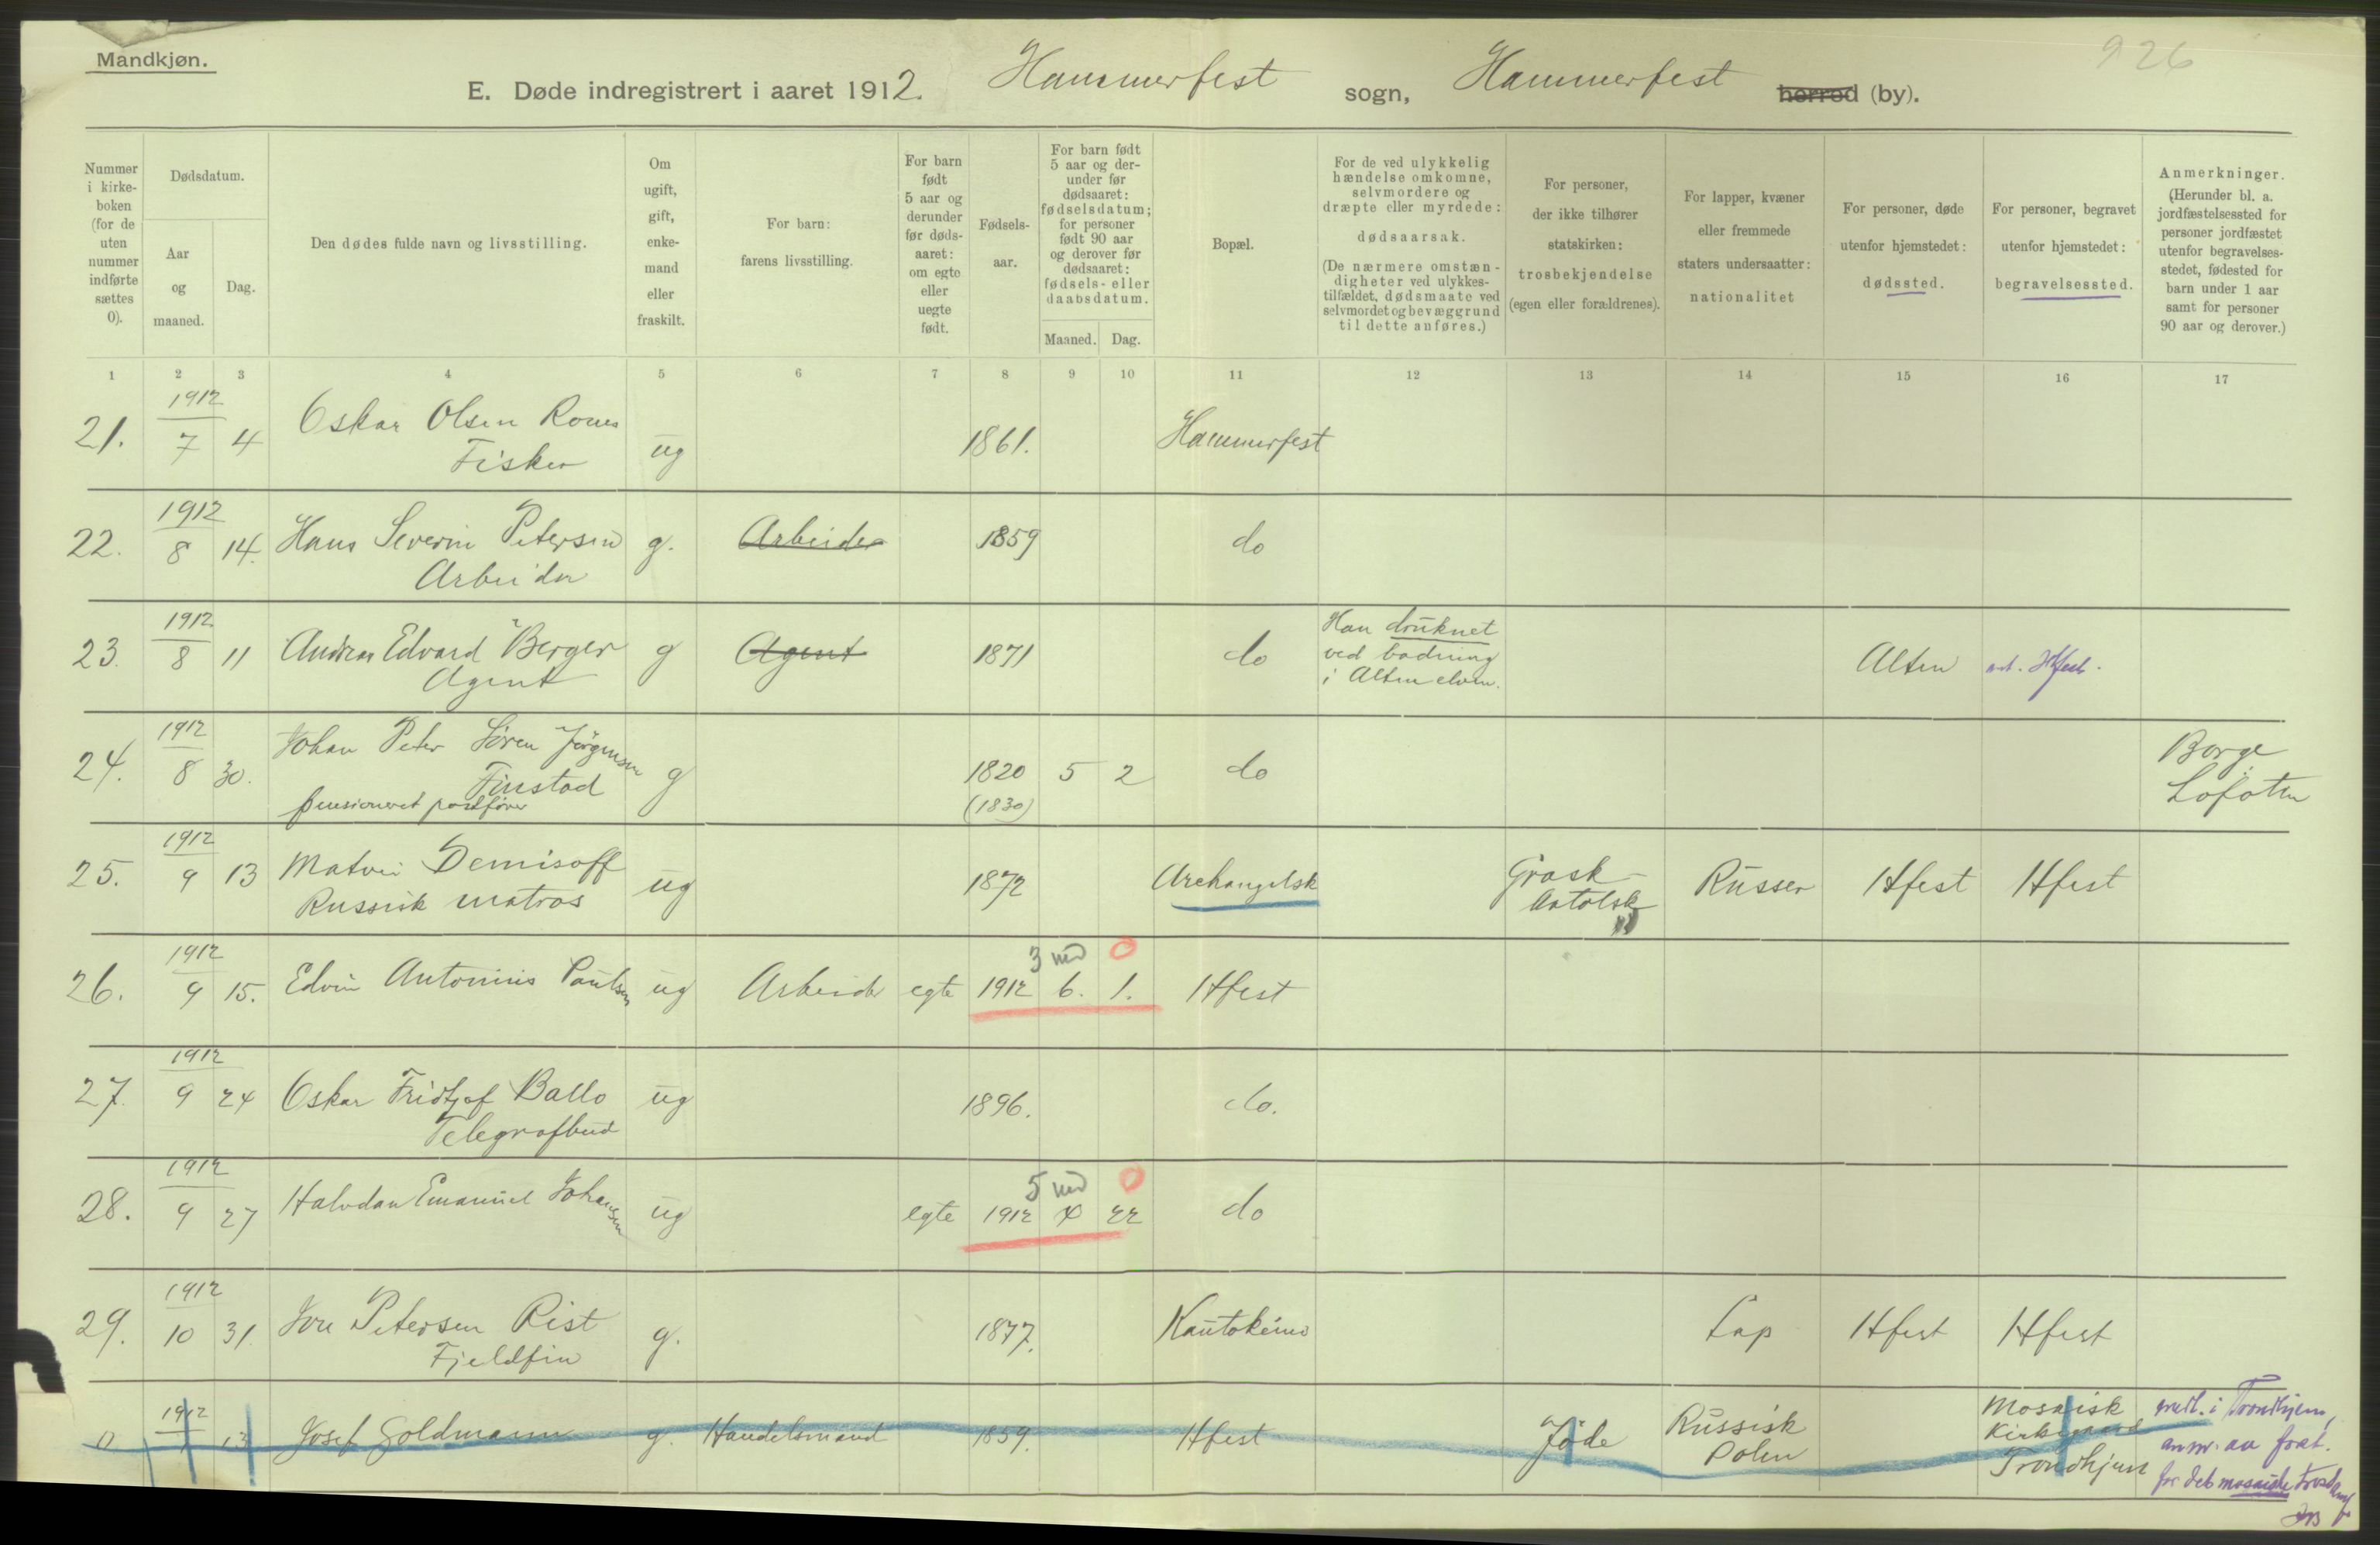 Mandkjøn.
926
E. Døde indregistrert i aaret 1912. Hammerfest sogn, Hammerfest herred (by).
Nummer i kirke-boken (for de uten nummer indførte sættes 0).
Dødsdatum.
Aar og maaned.
Dag.
Den dødes fulde navn og livsstilling.
Om ugift, gift, enke-mand eller fraskilt.
For barn: farens livsstilling.
For barn født 5 aar og derunder før døds-aaret: om egte eller uegte født.
Fødsels-aar.
For barn født 5 aar og der-under før dødsaaret: fødselsdatum; for personer født 90 aar og derover før dødsaaret: fødsels- eller daabsdatum.
Maaned. Dag.
Bopæl.
For de ved ulykkelig hændelse omkomne, selvmordere og dræpte eller myrdede: dødsaarsak. (De nærmere omstæn-digheter ved ulykkes-tilfældet, dødsmaate ved selvmordet og bevæggrund til dette anføres.)
For personer, der ikke tilhører statskirken: trosbekjendelse (egen eller forældrenes).
For lapper, kvæner eller fremmede staters undersaatter: nationalitet
For personer, døde utenfor hjemstedet: dødssted.
For personer, begravet utenfor hjemstedet: begravelsessted.
Anmerkninger. (Herunder bl. a. jordfæstelsessted for personer jordfæstet utenfor begravelses-stedet, fødested for barn under 1 aar samt for personer 90 aar og derover.)
1 2 3 4 5 6 7 8 9 10 11 12 13 14 15 16 17
21. 1912 7 4 Oskar Olsen
Fisker ug 1861. Hammerfest
22. 1912 8 14. Hans Severin Petersen g. Arbeider 1859 do
Arbeider
23. 1912 8 11 Andreas Edvard Berger g Agent 1871 do Han druknet ved badning i Alten elven. Alten Hfest.
Agent
24. 1912 8 30. Johan Peter Sören Jörgensen
Finstad g 1820 5 2 do Borge Lofoten
pensioneret postfører (1830)
25. 1912 9 13 Matvei Demisoff ug 1872 Archangelsk Græsk-katolsk Russer Hfest Hfest
Russisk matros
3 md 0
26. 1912 9 15. Edvin Antonius Paulsen ug Arbeider egte 1912 6. 1. Hfest
27. 1912 9 24 Oskar Fridtjof Ballo ug 1896. do.
Telegrafbud
5 md 0
28. 1912 9 27 Halvdan Emanuel Johansen ug egte 1912 4 22 do
29. 1912 10 31. Petersen Rist g. 1877. Kautokeino Lap Hfest Hfest
Fjeldfin
0 1912 13 Josef Goldmann g. Handelsmand 1859. Hfest Jøde Russisk Polen Mosaisk Kirkegaard Trondhjem
i Trondhjem,
for det mosaiske